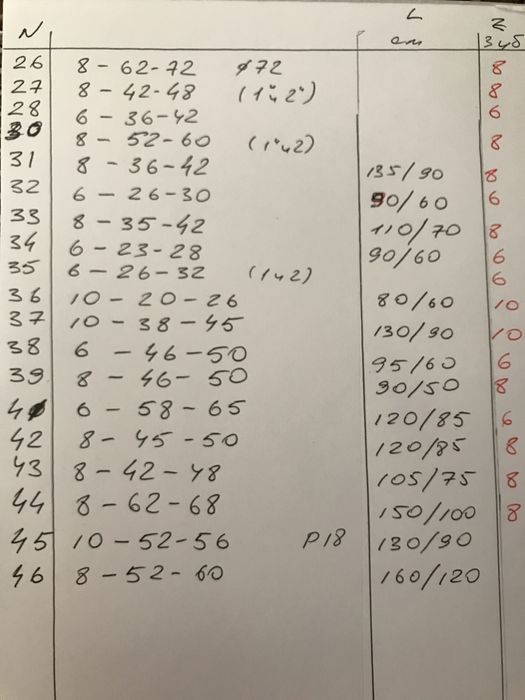 N L Z
cm зуб
26 8 - 62-72 ⌀72 8
27 8 - 42-48 (1и2) 8
28 6 - 36-42 6
30 8 - 52-60 (1и2) 8
31 8 - 36-42 135/90 8
32 6 - 26-30 90/60 6
33 8 - 35-42 110/70 8
34 6 - 23-28 90/60 6
35 6 - 26-32 (1и2) 6
36 10 - 20-26 80/60 10
37 10 - 38-45 130/90 10
38 6 - 46-50 95/60 6
39 8 - 46-50 90/50 8
6 - 58-65 120/85 6
42 8 - 45-50 120/85 8
43 8 - 42-48 105/75 8
44 8 - 62-68 150/100 8
45 10 - 52-56 P18 130/90
46 8 - 52-60 160/120